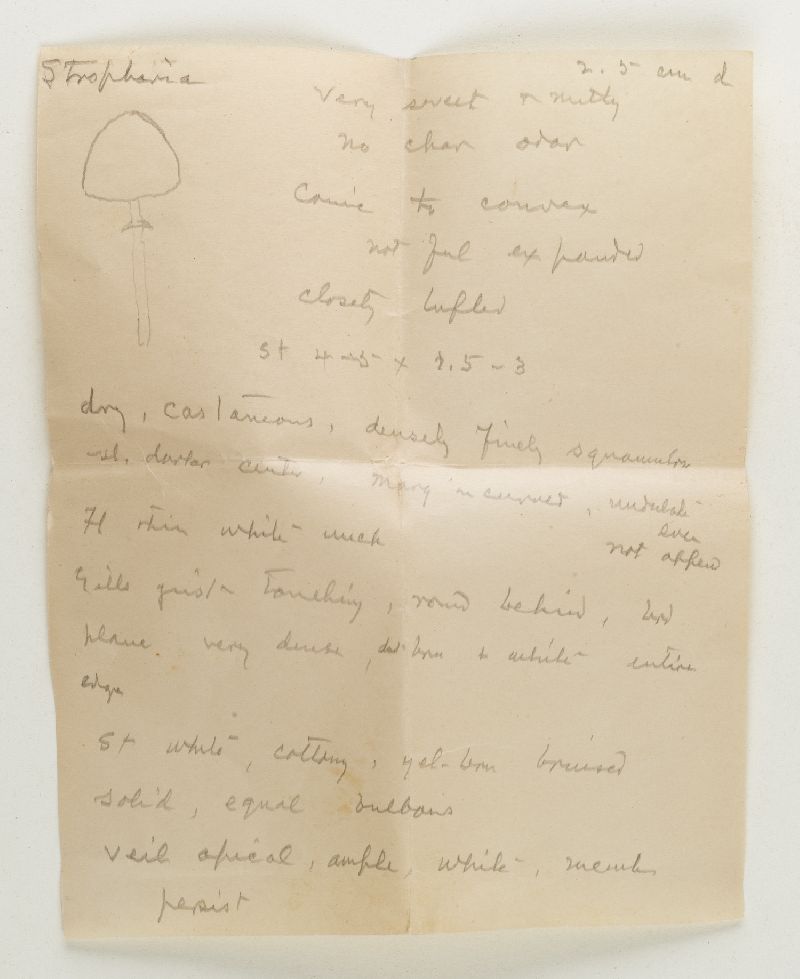 Stropharia 2.5 cm d
Very sweet & nutty
no char odor
Conic to convex
not ful expanded
closely tufted
St 4-5 x 2.5-3
dry, castaneous, densely finely squamulose
darker center, marg incurved, undulate
even
Fl thin white unch
not append
Gills just touching, round behind, brd
plane very dense, brn & white entire
edge
St white, cottony, yel-brn bruised
solid, equal bulbous
Veil apical, ample, white, memb
persist